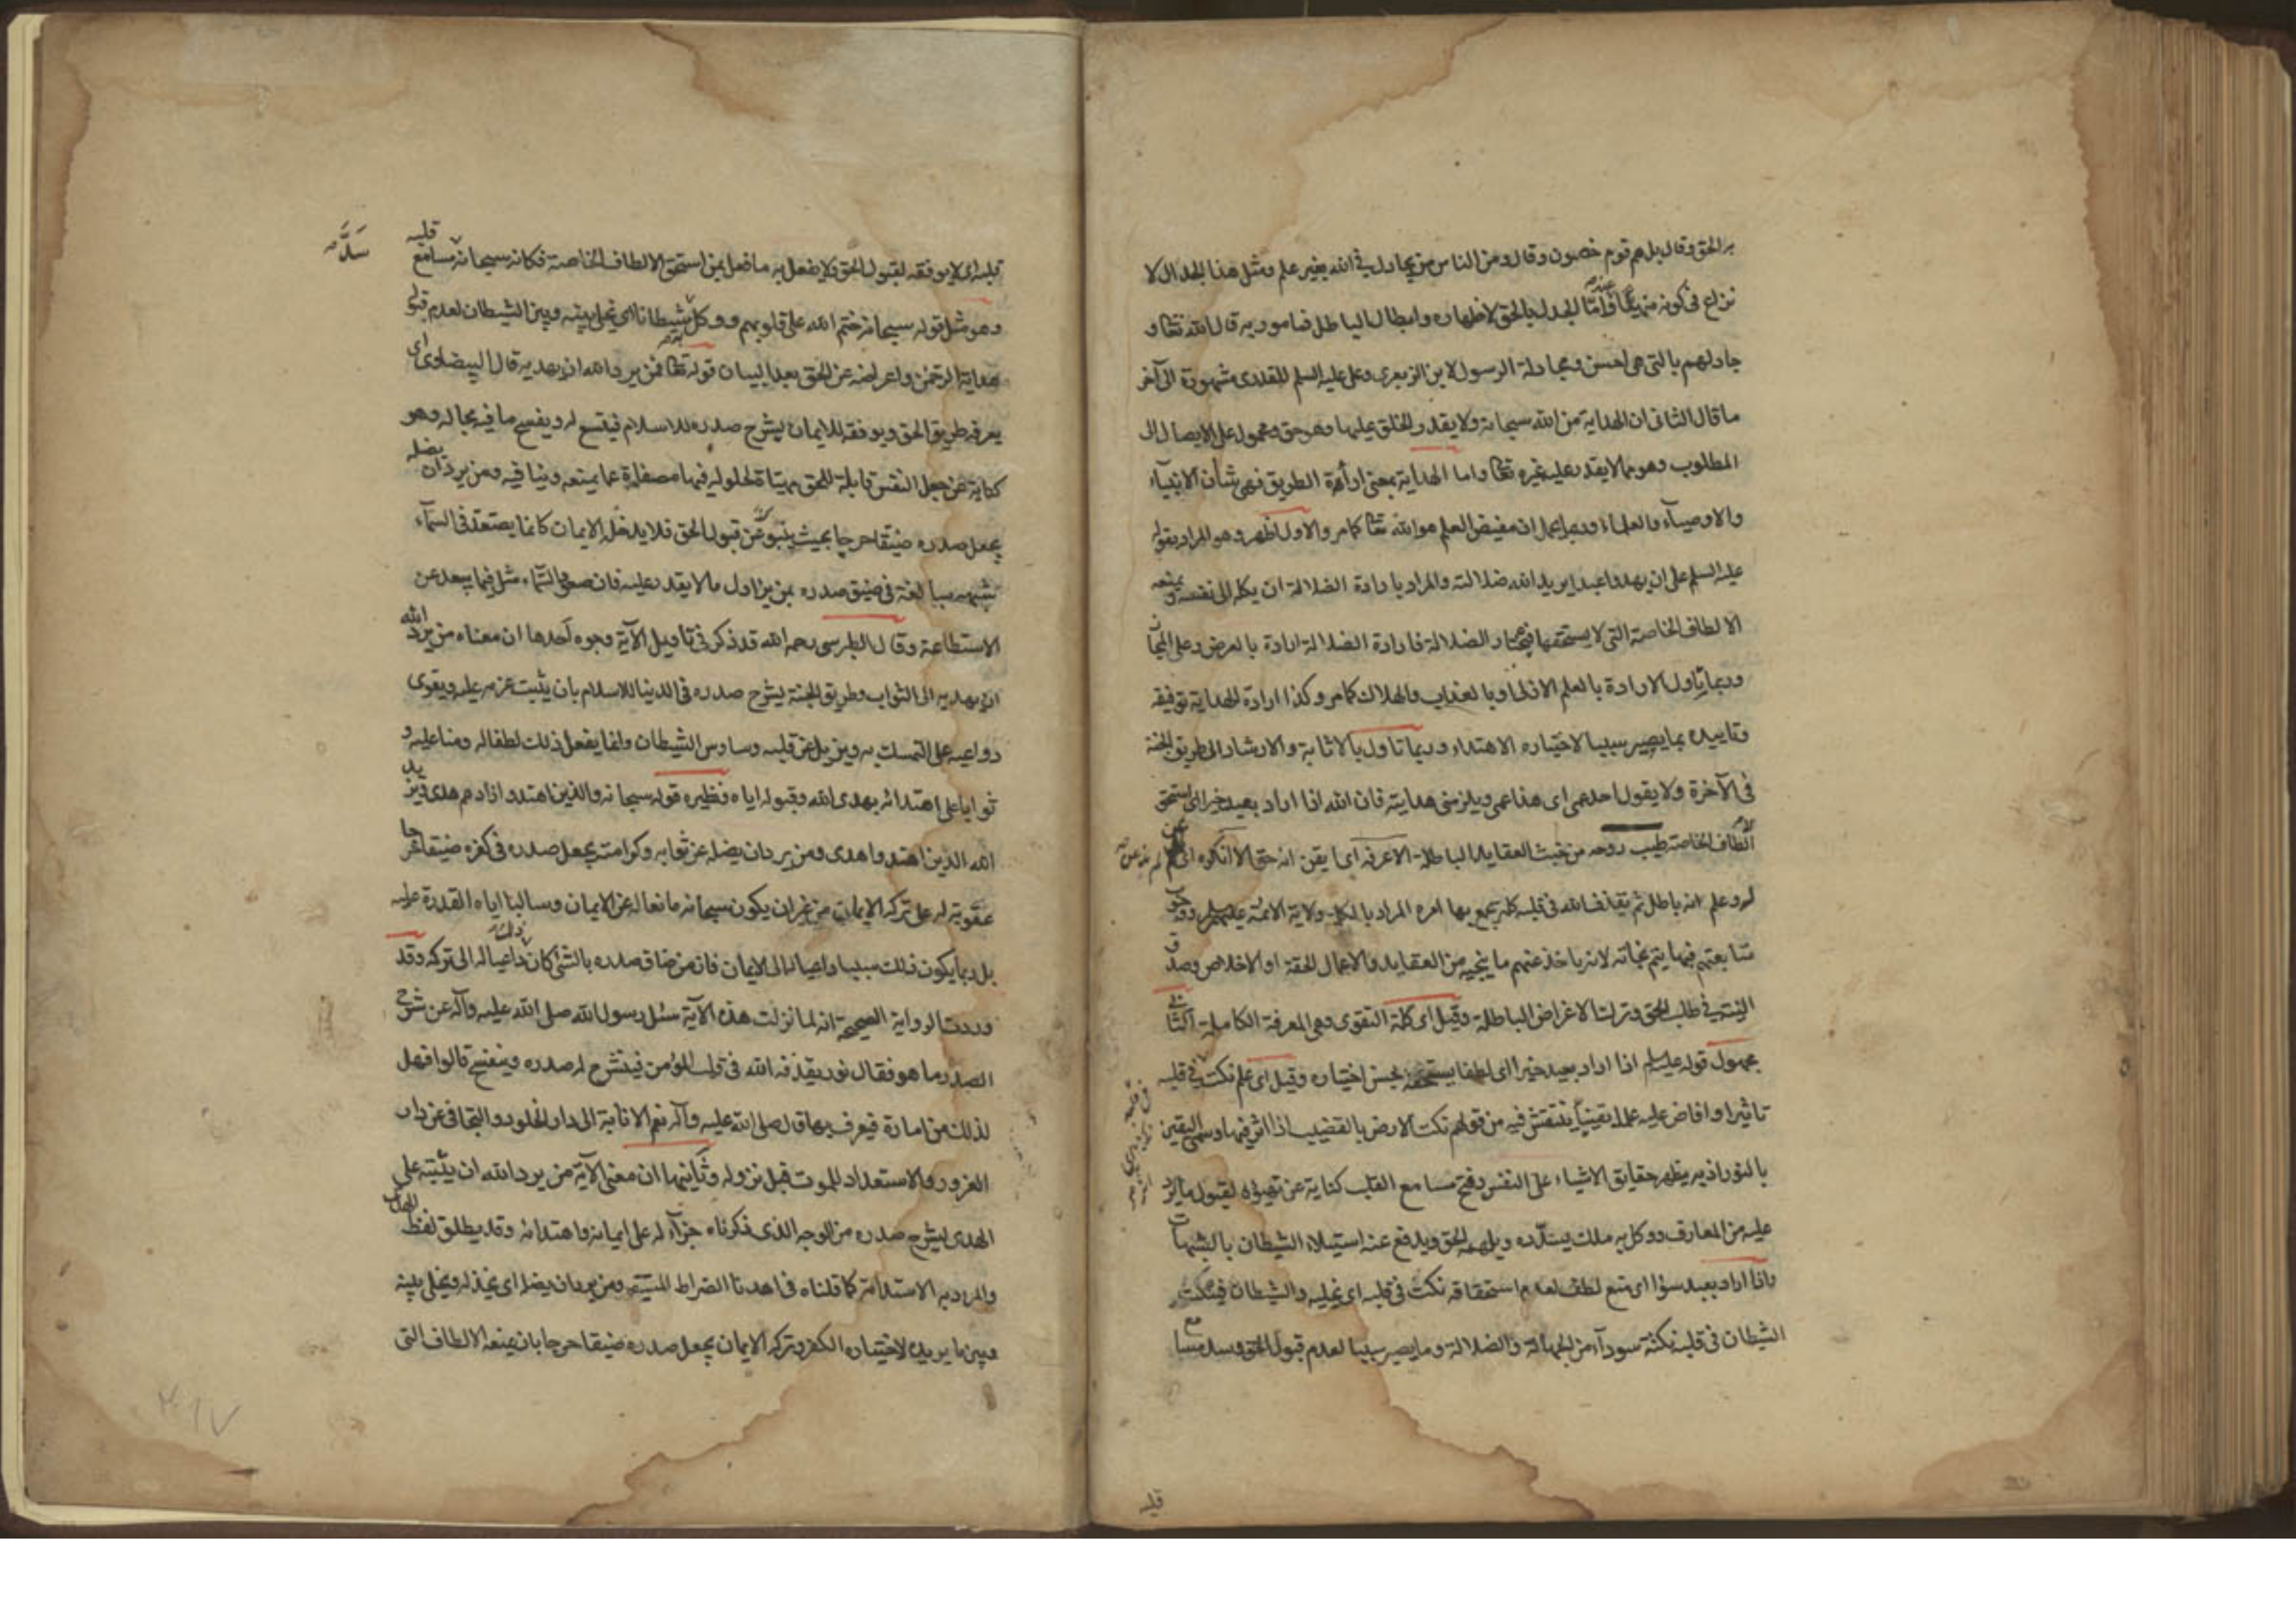 به الحق وقال بل هم قوم خصمون وقال ومن الناس من يجادل في الله بغير علم ومثل هذا الجدال لا
نزاع في كونه منهيا عنه واما الجدل بالحق لاظهاره وابطال الباطل فمامور به قال الله تعالى و
جادلهم بالتي هي احسن ومجادلة الرسول لابن الزبعرى وعلى عليه السلم للقدرى مشهورة الى آخر
ما قال الثاني ان الهداية من الله سبحانه ولا يقدر الخلق عليها وهو حق ومحمول على الايصال الى
المطلوب وهو مما لا يقدر عليه غيره تعالى واما الهداية بمعنى اراءة الطريق فهى شأن الانبيآء
والاوصيآء والعلماء وربما يحمل ان مفيض العلم هو الله تعالى كما مر والاول اظهر وهو المراد بقوله
عليه السلم على ان يهدوا عبدا يريد الله ضلالته والمراد بارادة الضلالة ان يكله الى نفسه ويمنعه
الالطاف الخاصة التي لا يستحقها فيختار الضلالة فارادة الضلالة ارادة بالعرض وعلى المجاز
وربما تاول الارادة بالعلم الازلى او بالعذاب والهلاك كما مر وكذا ارادة الهداية توفيقه
وتاييده بما يصير سببا لاختياره الاهتداء وربما تاول بالاثابة والارشاد الى طريق الجنة
في الآخرة ولا يقول احدهم اى هذا عمى ويلزمنى هدايته فان الله اذا اراد بعبد خيرا اى استحق
الالطاف الخاصة طيب روحه من خبث العقايد الباطلة الا عرفه اى ايقن انه حق الا انكره اى
له وعلم انه باطل ثم يقذف الله في قلبه كلمة يجمع بها امره المراد بالكلمة ولاية الائمة عليهم السلم ووجوب
متابعتهم فبها يتم نجاته لانه ياخذ عنهم ما ينجيه من العقايد والاعمال الحقة او الاخلاص وصدق
النية في طلب الحق وترك الاغراض الباطلة وقيل اى كلمة التقوى وهى المعرفة الكاملة الثالث
مجهول قوله عليه السلم اذا اراد بعبد خيرا اى لطفا يستحقه بحسن اختياره وقيل اى علم نكت في قلبه
تاثيرا وافاض عليه علما يقينيا ينتقش فيه من قولهم نكت الارض بالقضيب اذا اثر فيها وسمى اليقين
بالنور اذ به يظهر حقايق الاشياء على النفس وفتح مسامع القلب كناية عن تهيؤه لقبول ما يرد
عليه من المعارف ووكل به ملك يسدّده ويلهمه الحق ويدفع عنه استيلاء الشيطان بالشبهات
واذا اراد بعبد سوا اى منع لطفه لعدم استحقاقه نكت في قلبه اى يخليه والشيطان فينكت
الشيطان في قلبه نكتة سودآء من الجهالة والضلالة وما يصير سببا لعدم قبول الحق وسد مسامع
قلبه
قلبه اى لا يوفقه لقبول الحق ولا يفعل به ما فعل بمن استحق الالطاف الخاصة فكانه سبحانه سدّ مسامع قلبه
وهو مثل قوله سبحانه ختم الله على قلوبهم ووكل به شيطانا اى يخلى بينه وبين الشيطان لعدم قبوله
هداية الرحمن واعراضه عن الحق بعد البيان قوله تعالى فمن يرد الله ان يهديه قال البيضاوى اى
يعرفه طريق الحق ويوفقه للايمان يشرح صدره للاسلام فيتسع له ويفسح ما فيه مجاله وهو
كناية عن جعل النفس قابلة للحق مهيئاة لحلوله فيها مصفاة عما يمنعه وينافيه ومن يرد ان يضله
يجعل صدره ضيقا حرجا بحيث ينبو عن قبول الحق فلا يدخله الايمان كانما يصّعّد في السمآء
شبهه مبالغة في ضيق صدره بمن يزاول ما لا يقدر عليه فان صعود السماء مثل فيما يبعد عن
الاستطاعة وقال الطبرسى رحمه الله قد ذكر في تاويل الآية وجوه احدها ان معناه من يرد الله
ان يهديه الى الثواب وطريق الجنة يشرح صدره في الدنيا للاسلام بان يثبت عزمه عليه ويقوى
دواعيه على التمسك به ويزيل عن قلبه وساوس الشيطان وانما يفعل ذلك لطفا له ومنا عليه و
ثوابا على اهتدائه بهدى الله وقبوله اياه ونظيره قوله سبحانه والذين اهتدوا زادهم هدى ويزيد
الله الذين اهتدوا هدى ومن يرد ان يضله عن ثوابه وكرامته يجعل صدره في كفره ضيقا حرجا
عقوبة له على تركه الايمان من غير ان يكون سبحانه مانعا له عن الايمان وسالبا اياه القدرة عليه
بل ربما يكون ذلك سببا داعيا له الى الايمان فان من ضاق صدره بالشئ كان ذلك داعيا له الى تركه وقد
وردت الرواية الصحيحة انه لما نزلت هذه الآية سئل رسول الله صلى الله عليه وآله عن شرح
الصدر ما هو فقال نور يقذفه الله في قلب المؤمن فينشرح له صدره وينفسح قالوا فهل
لذلك من امارة فيعرف بها قال صلى الله عليه وآله نعم الانابة الى دار الخلود والتجافى عن دار
الغرور والاستعداد للموت قبل نزوله وثانيها ان معنى الآية من يرد الله ان يثبته على
الهدى يشرح صدره من الوجه الذى ذكرناه جزآء له على ايمانه واهتدائه وقد يطلق لفظ الهدى
والمراد به الاستدامة كما قلناه في اهدنا الصراط المستقيم ومن يرد ان يضله اى يخذله ويخلى بينه
وبين ما يريده لاختياره الكفر وتركه الايمان يجعل صدره ضيقا حرجا بان يمنعه الالطاف التى